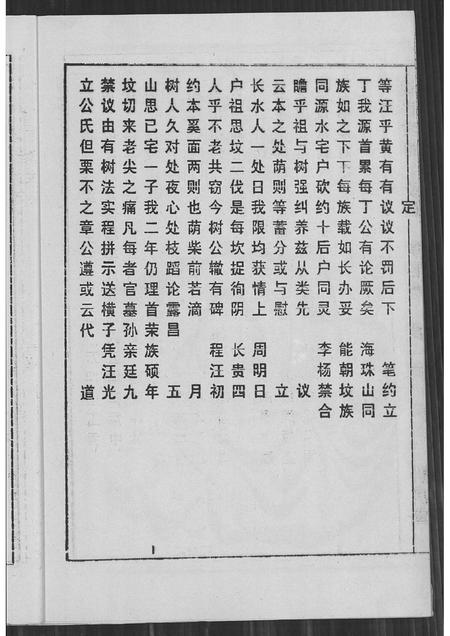 立禁坟山树约人户长云瞻同族丁等
公议切思人本乎祖水本乎源如我汪
氏由来已久奚不思人之祖水之源乎
但有老宅对面老坟一处与宅下首黄
栗树尖一处两共二处荫树户下累有
不法之子夜则窃伐日则强砍每每有
之实痛我心也今是我等纠约族丁议
章程凡二处荫树每限蓄养十载公议
公拼每年枝柴公坎均分兹后如有不
遵示者仍蹈前辙捉获或从户长论罚
或送官理论若有徇情与类同办厥后
云横墓首露滴碑阴上慰先灵妥矣下
代子孙荣昌
凭亲族 程长周 李能海
汪廷硕 汪贵明 杨朝珠笔
道光九年五月初四日立议禁坟山约
合族同立
定